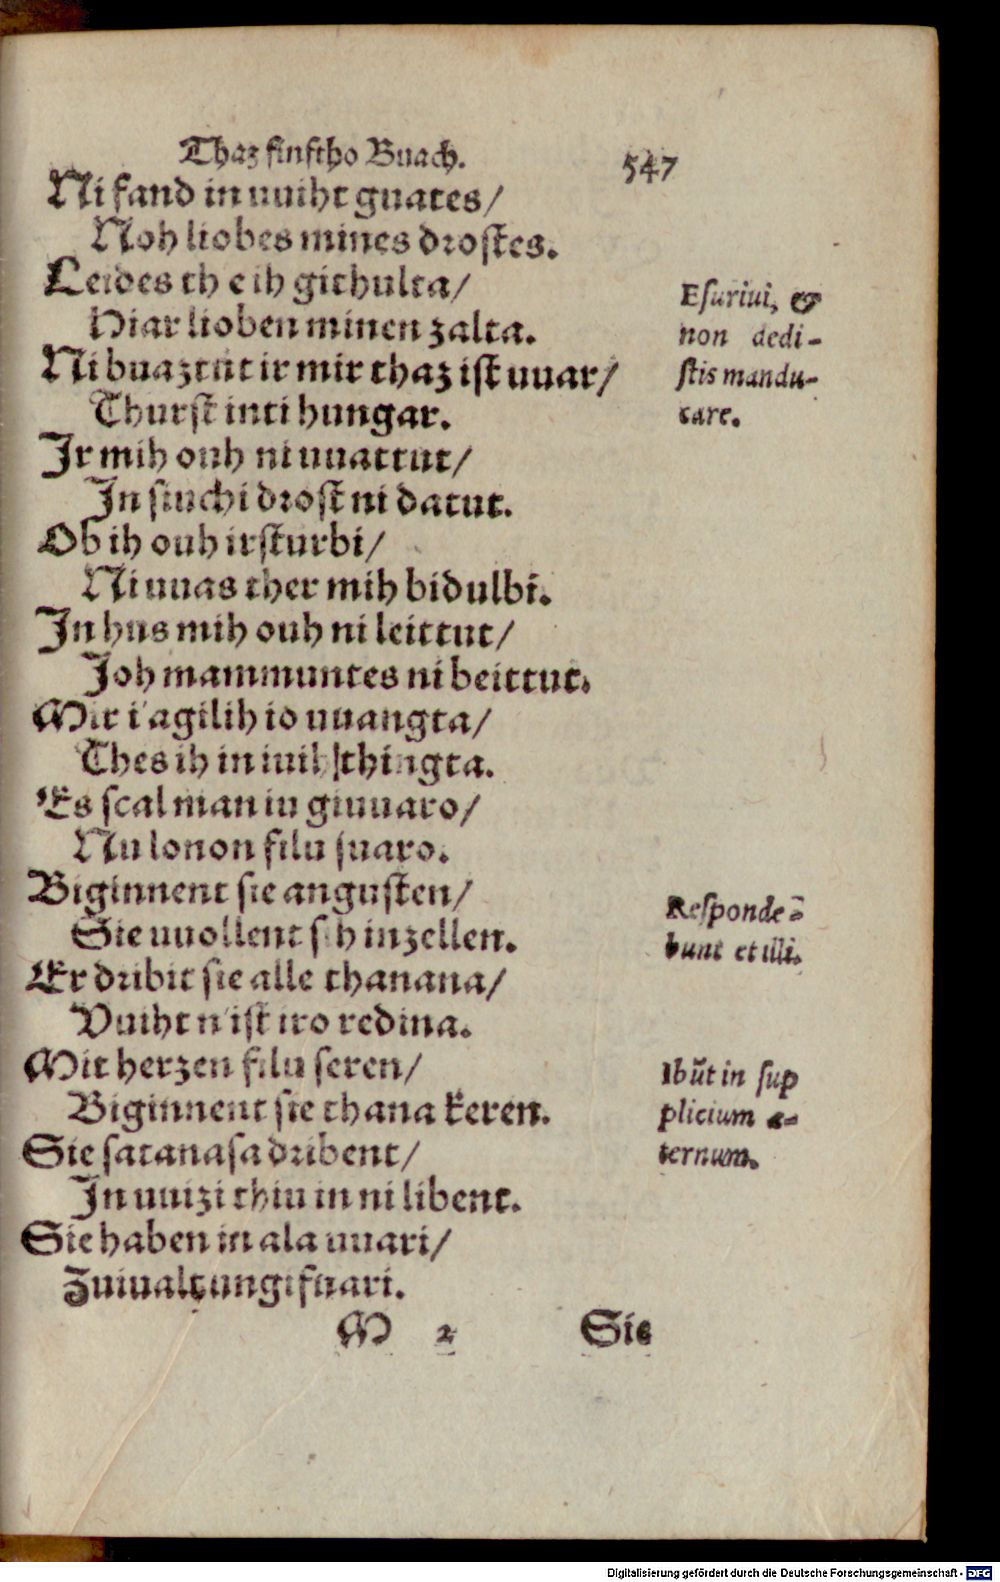 Thaz finftho Buach. 547
Ni fand in uuiht guates/
Noh liobes mines drostes.
Leides th e ih githulta/
Hiar lioben minen zalta.
Ni buaztut ir mir thaz ist uuar/
Thurst inti hungar.
Ir mih ouh ni uuattut/
In siuchi drost ni datut.
Ob ih ouh irsturbi/
Ni uuas ther mih bidulbi.
In hus mih ouh ni leittut/
Joh mammuntes ni beittut.
Mir i'agilih io uuangta/
Thes ih in thingta.
Es scal man iu giuuaro/
Nu lonon filu suaro.
Biginnent sie angusten/
Sie uuollent sih inzellen.
Er dribit sie alle thanana/
Vuiht n'ist iro redina.
Mit herzen filu seren/
Biginnent sie thana keren.
Sie satanasa dribent/
In uuizi thiu in ni libent.
Sie haben in ala uuari/
Zuiualt ungifuari.
M 2 Sie
Esuriui, &
non dedi-
stis mandu-
care.
Responde-
bunt et illi.
Ibūt in sup
plicium æ-
ternum.
Digitalisierung gefördert durch die Deutsche Forschungsgemeinschaft - DFG